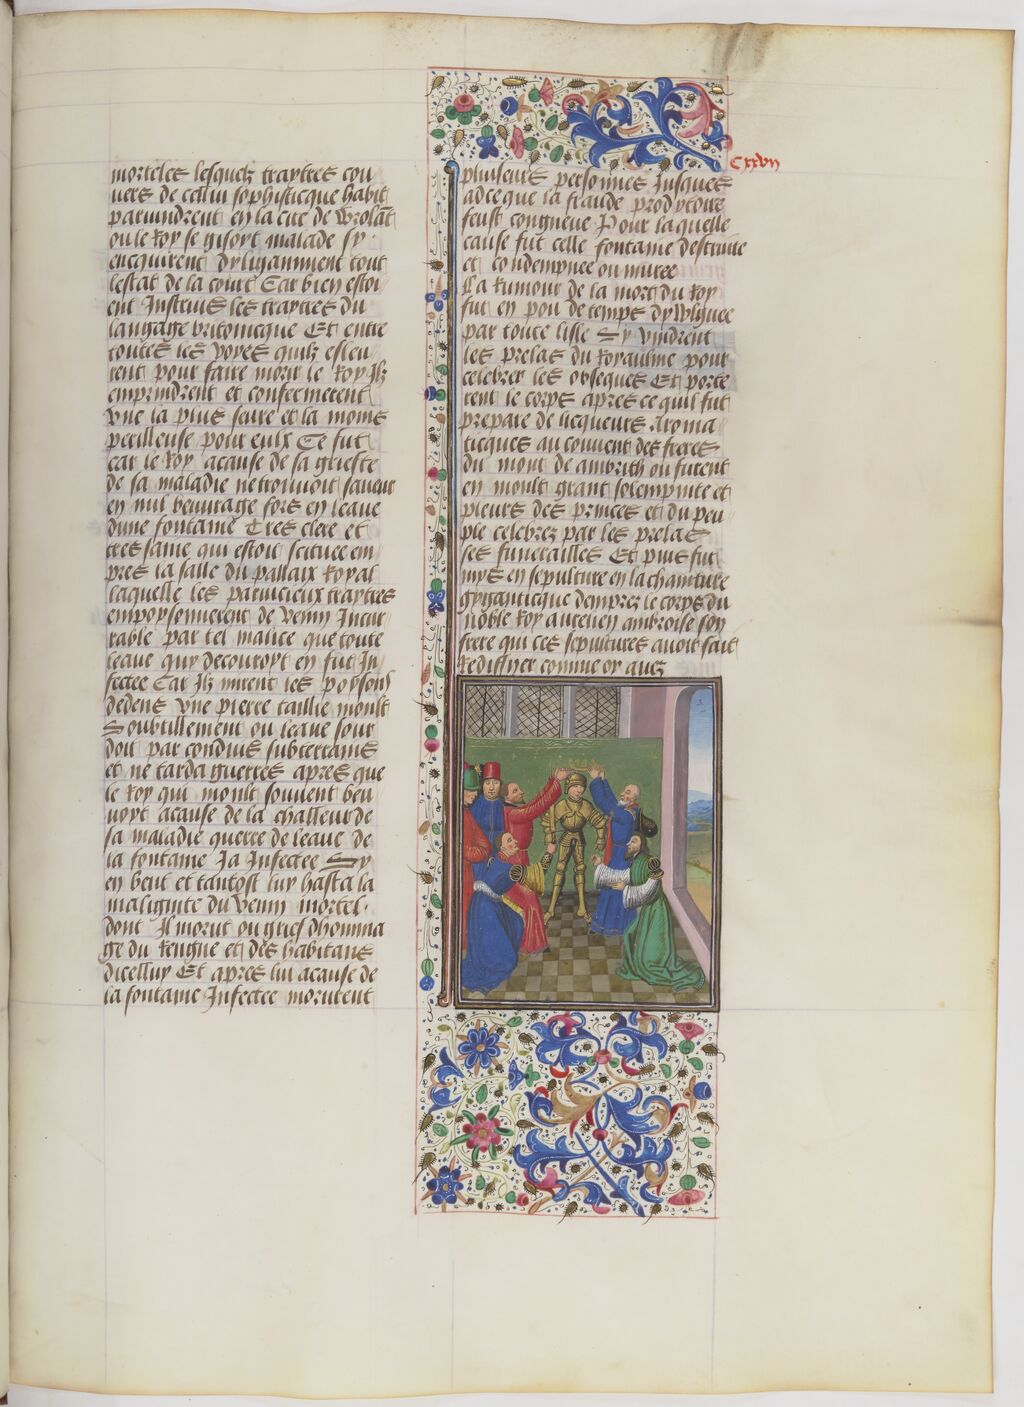 Cxxvii
morteles lesquelz traytres cou
uers de cellui sophisticque habit
paruindrent en la cite de
ou le Roy se gisoyt malade sy
encquirent dyligamment tout
lestat de la court Car bien estoi
ent Instruis les traytres du
langage britonicque Et entre
toutes les voyes quilz esleu
rent pour faire morir le Roy Ilz
emprindrent et confermerent
vne la plus seure et la moins
perilleuse pour eulx Ce fut
car le Roy acause de sa griefte
de sa maladie ne trouuoit saueur
en nul beuurage fors en leaue
dune fontaine Tres clere et
tres saine qui estoit scituee em
pres la salle du pallaix Royal
laquelle les paruicieux traytres
empoysonnerent de venin Incur
rable par tel malice que toute
leaue quy decouroyt en fut In
fectee Car Ilz mirent les poysons
dedens vne pierre taillie moult
Soubtillement ou leaue sour
doit par conduis subterrains
et ne tarda guerres apres que
le Roy qui moult souuent beu
uoyt acause de la challeur de
sa maladie querre de leaue de
la fontaine Ja Infectee Sy
en beut et tantost luy hasta la
malignite du venin mortel
dont Il morut ou grief dhomma
ge du Rengne et des habitans
dicelluy Et apres lui acause de
la fontaine Infectee morurent
pluiseurs personnes Jusques
adce que la fraude prodytoire
feust congneue Pour laquelle
cause fut celle fontaine destruite
et condempnee ou muree
La Rumour de la mort du Roy
fut en pou de temps dyvlguee
par toute lisle Sy vindrent
les prelas du Royaulme pour
celebrer les obseques Et porte
rent le corps apres ce quil fut
prepare de licqueurs Aroma
ticques au couuent des freres
du mont de ambrith ou furent
en moult grant solempnite et
pleurs des princes et du peu
ple celebrez par les prelas
ses funerailles Et puis fut
mys en sepulture en la chainture
gyganticque dempres le corps du
noble Roy aurelien ambroise son
frere qui ces sepultures auoit fait
Rediffier comme oy auez